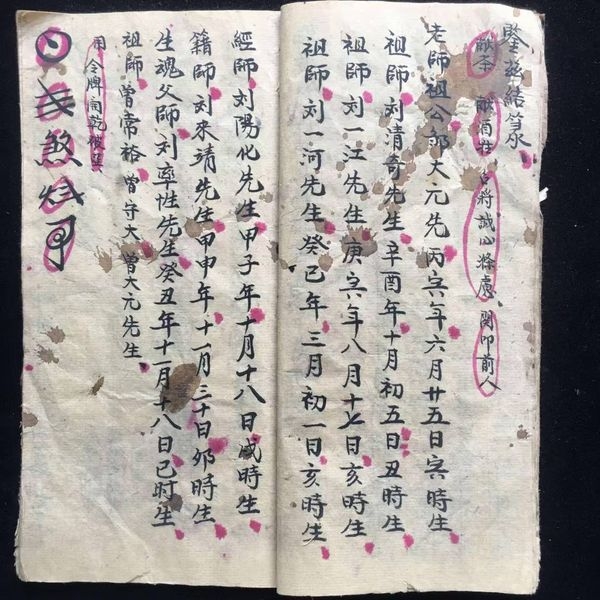 鑒茲結篆
献茶 献酒社 名將誠心滌慮 関叩前人
老師祖公鄧大元先 丙寅年六月廿五日寅時生
祖師刘清奇先生辛酉年十月初五日丑時生
祖師刘一江先生庚寅年八月十七日亥時生
祖師刘一河先生癸巳年三月初一日亥時生
經師刘陽化先生甲子年十月十八日戌時生
籍師刘來靖先生甲申年十一月三十日卯時生
生魂父師刘率性先生癸丑年十一月十八日巳时生
祖師曾常裕 曾守大 曾大元先生
用令牌 乾
煞